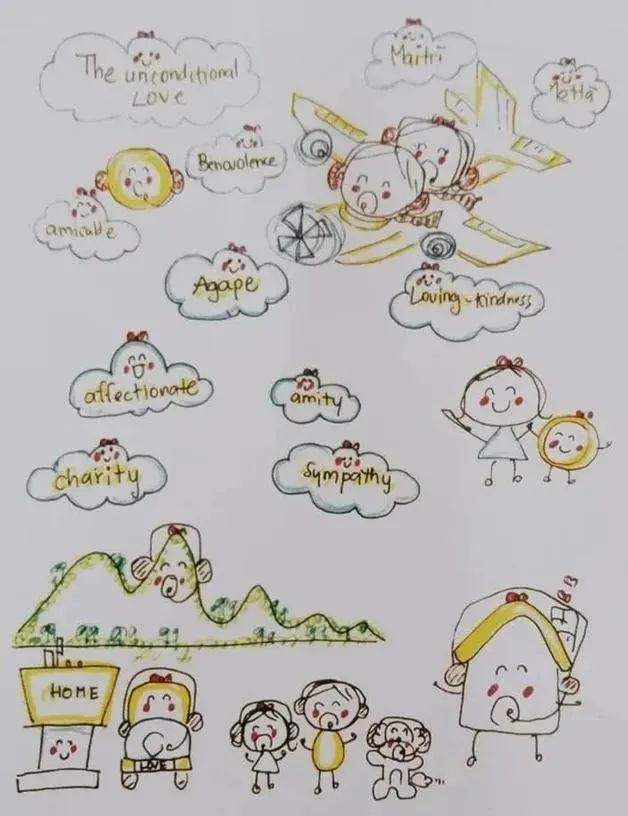 The unconditional
LOVE
Maitri
Metta
Benovolence
amicable
Agape
Loving-kindness
affectionate
amity
charity
Sympathy
HOME
LOVE